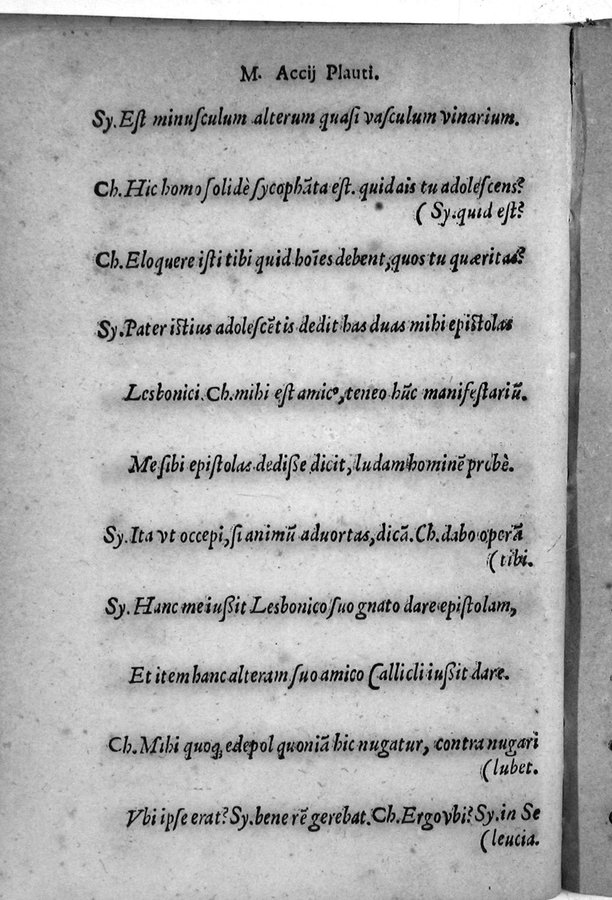 M. Accij Plauti.
Sy. Est minusculum alterum quasi vasculum vinarium.
Ch. Hic homo solidè sycophāta est. quid ais tu adolescens?
(Sy. quid est?
Ch. Eloquere isti tibi quid hoīes debent, quos tu quæritas?
Sy. Pater istius adolescētis dedit has duas mihi epistolas
Lesbonici. Ch. mihi est amicꝰ, teneo hūc manifestariū.
Me sibi epistolas dedisse dicit, ludam hominē probè.
Sy. Ita vt occepi, si animū aduortas, dicā. Ch. dabo operā
(tibi.
Sy. Hanc me iußit Lesbonico suo gnato dare epistolam,
Et item hanc alteram suo amico Callicli iußit dare.
Ch. Mihi quoq; edepol quoniā hic nugatur, contra nugari
(lubet.
Vbi ipse erat? Sy. bene rē gerebat. Ch. Ergo vbi? Sy. in Se
(leucia.